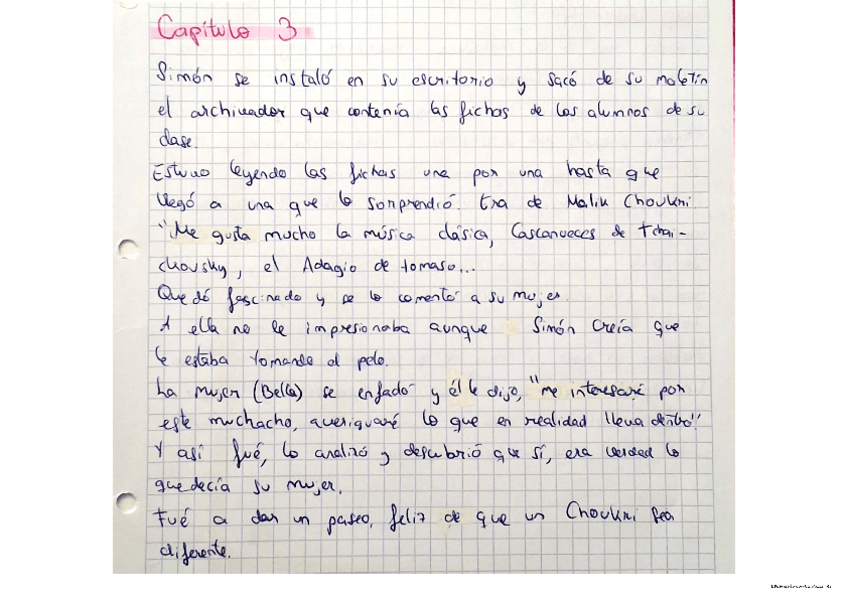 Capítulo 3
Simón se instaló en su escritorio y sacó de su maletín
el archivador que contenía las fichas de los alumnos de su
clase.
Estuvo leyendo las fichas una por una hasta que
llegó a una que lo sorprendió. Era de Malik Choukri
"Me gusta mucho la música clásica, Cascanueces de Tchai-
chovsky, el Adagio de tomaso...
Quedó fascinado y se lo comentó a su mujer.
A ella no le impresionaba aunque Simón creía que
le estaba tomando el pelo.
La mujer (Bella) se enfadó y él le dijo, "me interesaré por
este muchacho, averiguaré lo que en realidad lleva dentro"
Y así fué, lo analizó y descubrió que sí, era verdad lo
que decía su mujer.
Fué a dar un paseo, feliz de que un Choukri sea
diferente.